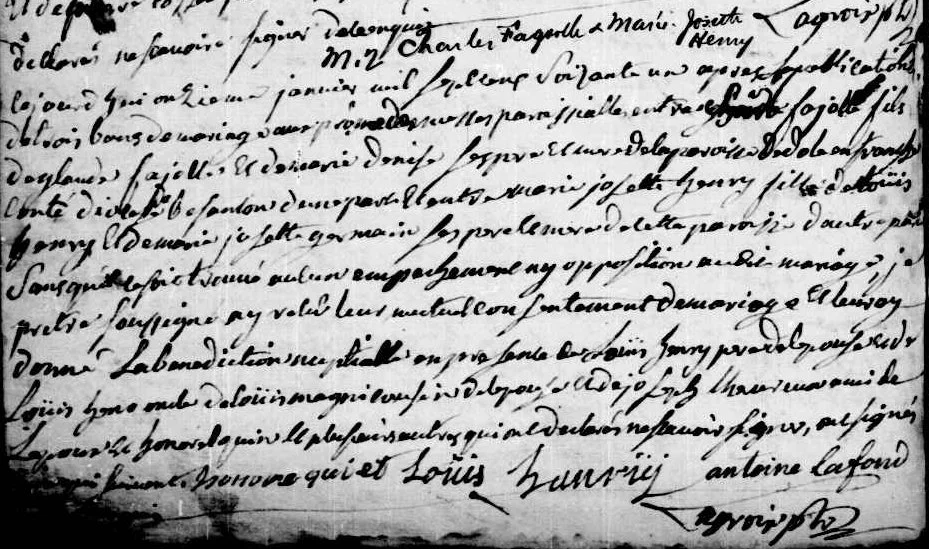 declarés ne scavoir signer de ce enquis
Lagroix ptre
M. 7 Charles Fagnolle & Marie Josette
Henry
le jourd huy onzieme janvier mil sept cens soixante un apres la publication
de trois bans de mariage aux prones des messes paroissialles entre fajolle fils
de glaude fajolle et de marie denise ses pere et mere de la paroisse de dole en franche
conté diocese besanson d'une part et entre marie josette henry fille de Loüis
henry et de marie josette germain ses pere et mere de cette paroisse d'autre part
sans qu'il se soit trouvé aucun empechement ny opposition audit mariage, je
pretre soussigné ay reçu leur mutuel consentement de mariage et leur ay
donné la benediction nuptialle en presence de Loüis henry pere de l'epouse et de
Loüis oncle de loüis magni cousin de l'epouse et de joseph ami de
l'epoux et honoré quiet et plusieurs autres qui ont declarés ne scavoir signer, ont signés
honore quiet Loüis hanrÿ antoine lafond
Lagroix ptre